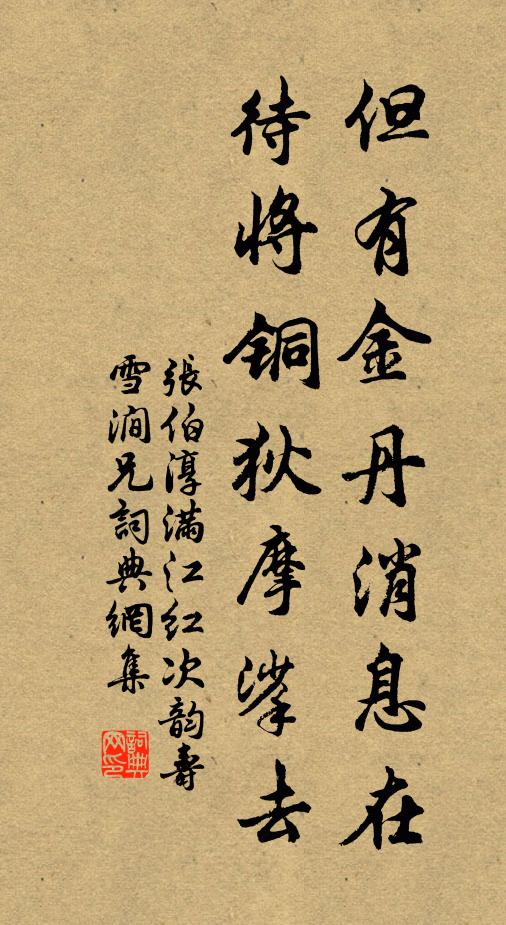 但有金丹消息在
待將銅狄摩挲去
張伯淳滿江红次韵壽
雪澗兄詞典網集
詞典
网印